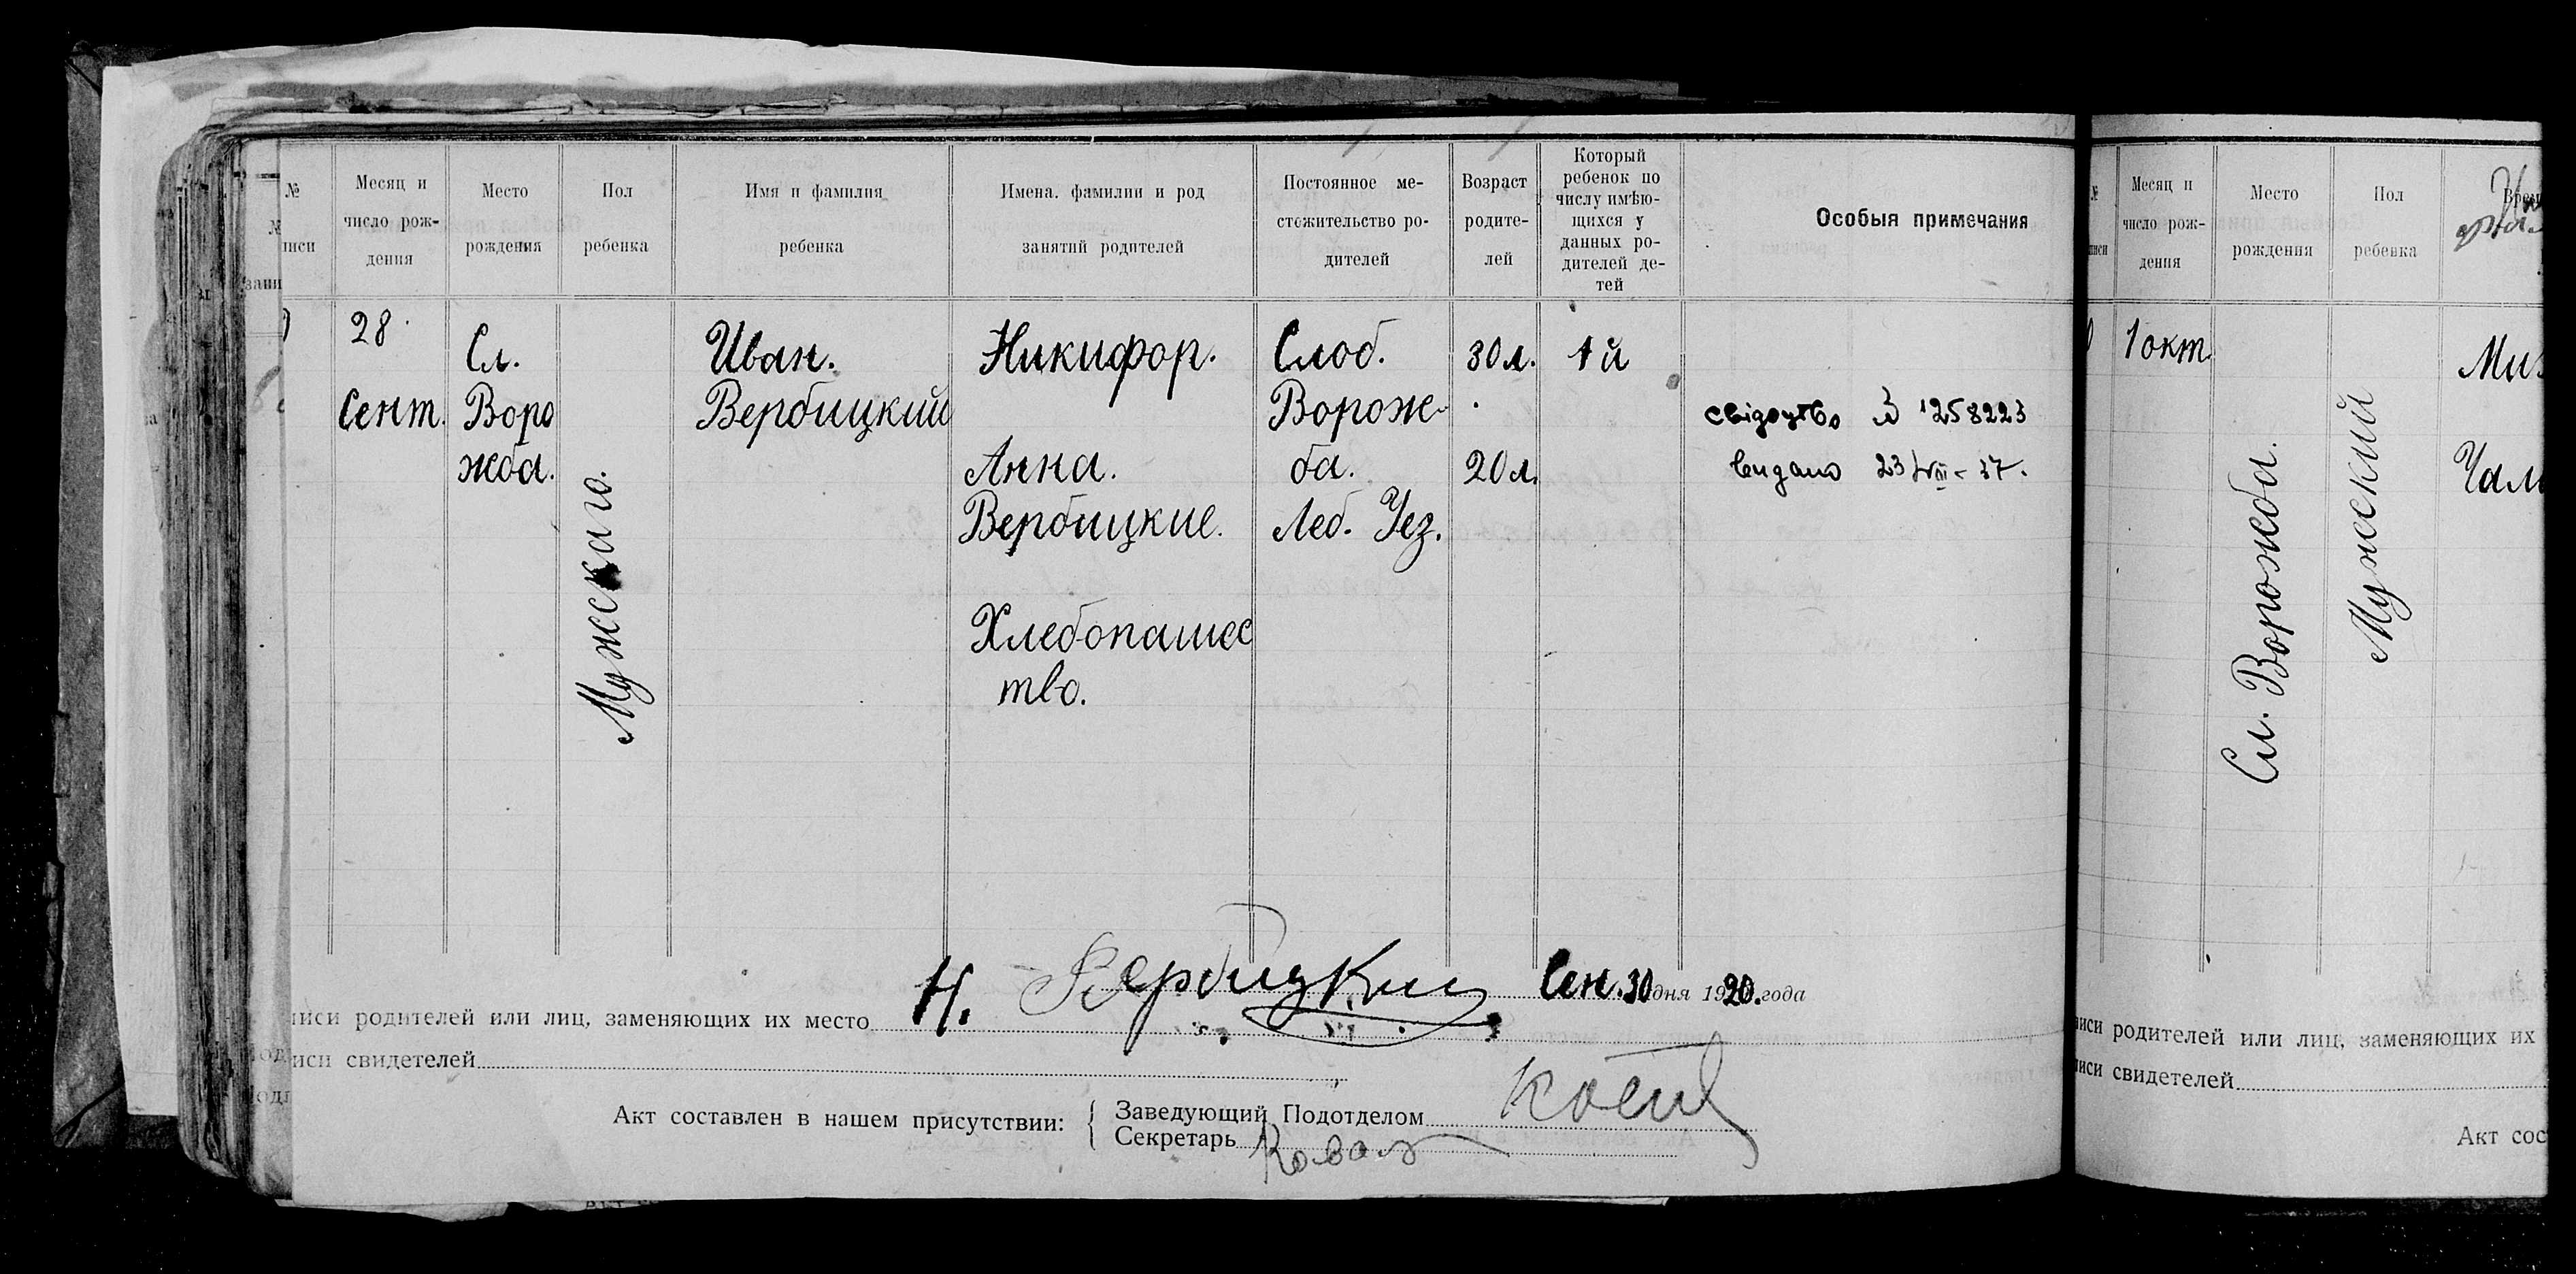 №
иси
Месяц и
число рож-
дения
Место
рождения
Пол
ребенка
Имя и фамилия
ребенка
Имена. фамилии и род
занятий родителей
Постоянное ме-
стожительство ро-
дителей
Возраст
родите-
лей
Который
ребенок по
числу имѣю-
щихся у
данных ро-
дителей де-
тей
Особыя примечания
28
Сент.
Сл.
Воро
жба.
Мужскаго.
Иван.
Вербицкий
Никифор.
Анна.
Вербицкие.
Хлебопашес
тво.
Слоб.
Ворож-
ба.
Леб. Уез.
30 л.
20 л.
1й
свідоцтво 1258223
видано 23/VIII-37.
Сен. 30 дня 1920. года
иси родителей или лиц, заменяющих их место Н. Вербицкий
иси свидетелей
Акт составлен в нашем присутствии:
Заведующий Подотделом
Секретарь
№
иси
Месяц и
число рож-
дения
Место
рождения
Пол
ребенка
1 окт
Сл. Ворожба.
Мужеский
Ми
Чал
иси родителей или лиц, заменяющих их
иси свидетелей
Акт сос